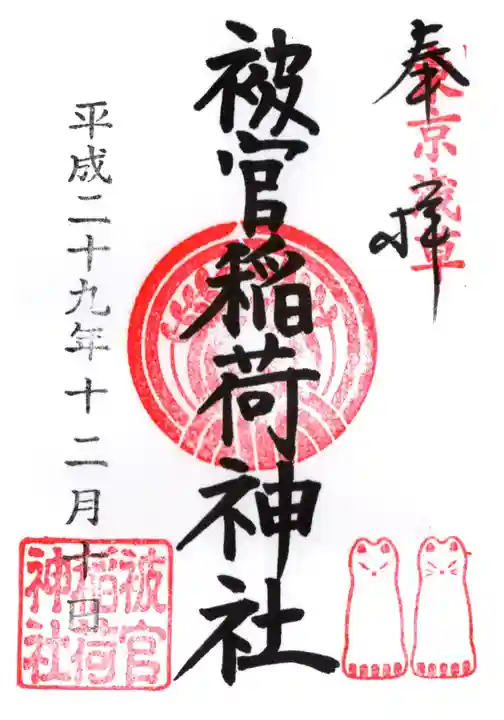 奉拝
東京浅草
被官稲荷神社
平成二十九年十二月十四日
被官
稲荷
神社